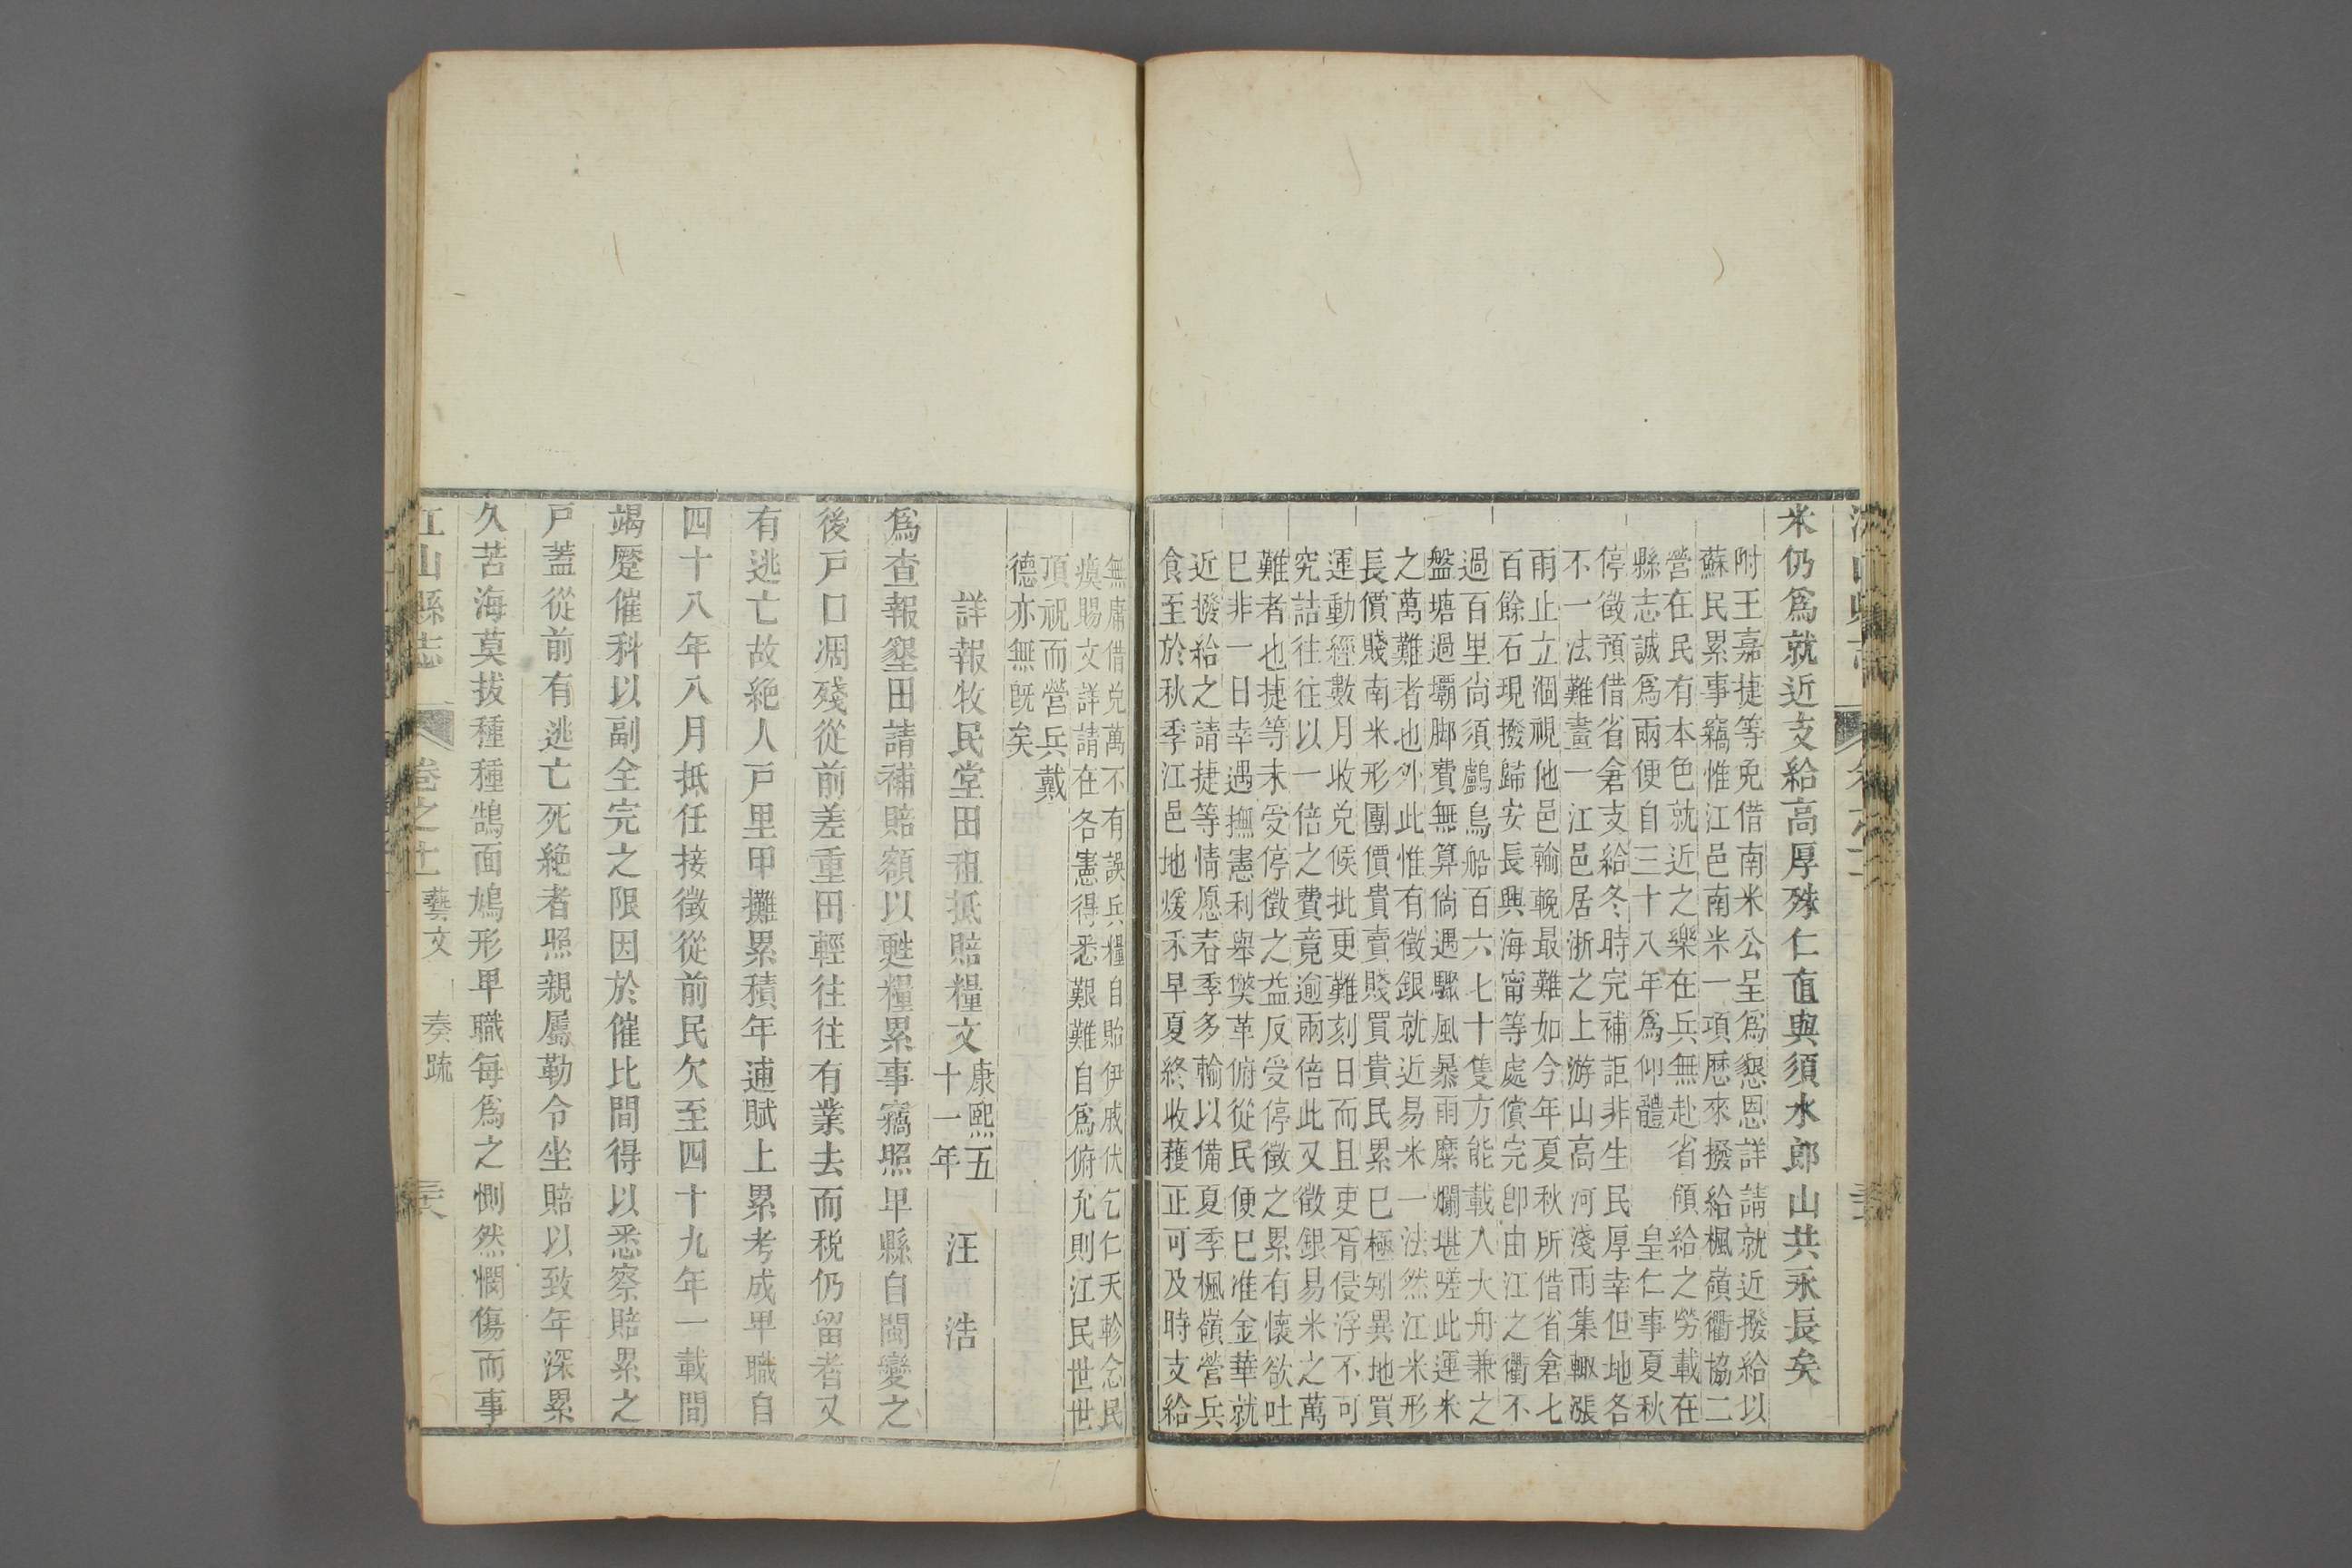 米仍爲就近支給高厚殊仁直與須水郎山共永長矣
附王嘉捷等免借南米公呈爲懇恩詳請就近撥給以
蘇民累事竊惟江邑南米一項歷來撥給楓嶺衢協二
營在民有本色就近之樂在兵無赴省領給之勞載在
縣志誠爲兩便自三十八年爲仰體 皇仁事夏秋
停徵預借省倉支給冬時完補詎非生民厚幸但地各
不一法難畫一江邑居浙之上游山高河淺雨集輙漲
雨止立涸視他邑輸輓最難如今年夏秋所借省倉七
百餘石現撥歸安長興海甯等處償完卽由江之衢不
過百里尚須鸕鳥船百六七十隻方能載入大舟兼之
盤塘過壩脚費無算倘遇驟風暴雨糜爛堪嗟此運米
之萬難者也外此惟有徵銀就近易米一法然江米形
長價賤南米形團價貴賣賤買貴民累巳極矧異地買
運動經數月收兌候批更難刻日而且吏胥侵浮不可
究詰往往以一倍之費竟逾兩倍此又徵銀易米之萬
難者也捷等未受停徵之益反受停徵之累有懷欲吐
巳非一日幸遇撫憲利舉獘革俯從民便巳准金華就
近撥給之請捷等情愿春季多輸以備夏季楓嶺營兵
食至於秋季江邑地煖禾早夏終收穫正可及時支給
無庸借兌萬不有誤兵糧自貽伊戚伏乞仁天軫念民
瘼賜文詳請在各憲得悉艱難自爲俯允則江民世世
頂祝而營兵戴
德亦無既矣
詳報牧民堂田租抵賠糧文康熙五十一年 汪 浩
爲查報墾田請補賠額以甦糧累事竊照卑縣自閩變之
後戸口凋殘從前差重田輕往往有業去而稅仍留者又
有逃亡故絶人戸里甲攤累積年逋賦上累考成卑職自
四十八年八月抵任接徵從前民欠至四十九年一載間
竭蹷催科以副全完之限因於催比間得以悉察賠累之
戸蓋從前有逃亡死絶者照親屬勒令坐賠以致年深累
久苦海莫拔種種鵠面鳩形卑職每爲之惻然憫傷而事
江山縣志 卷之十一 藝文 奏疏 三六